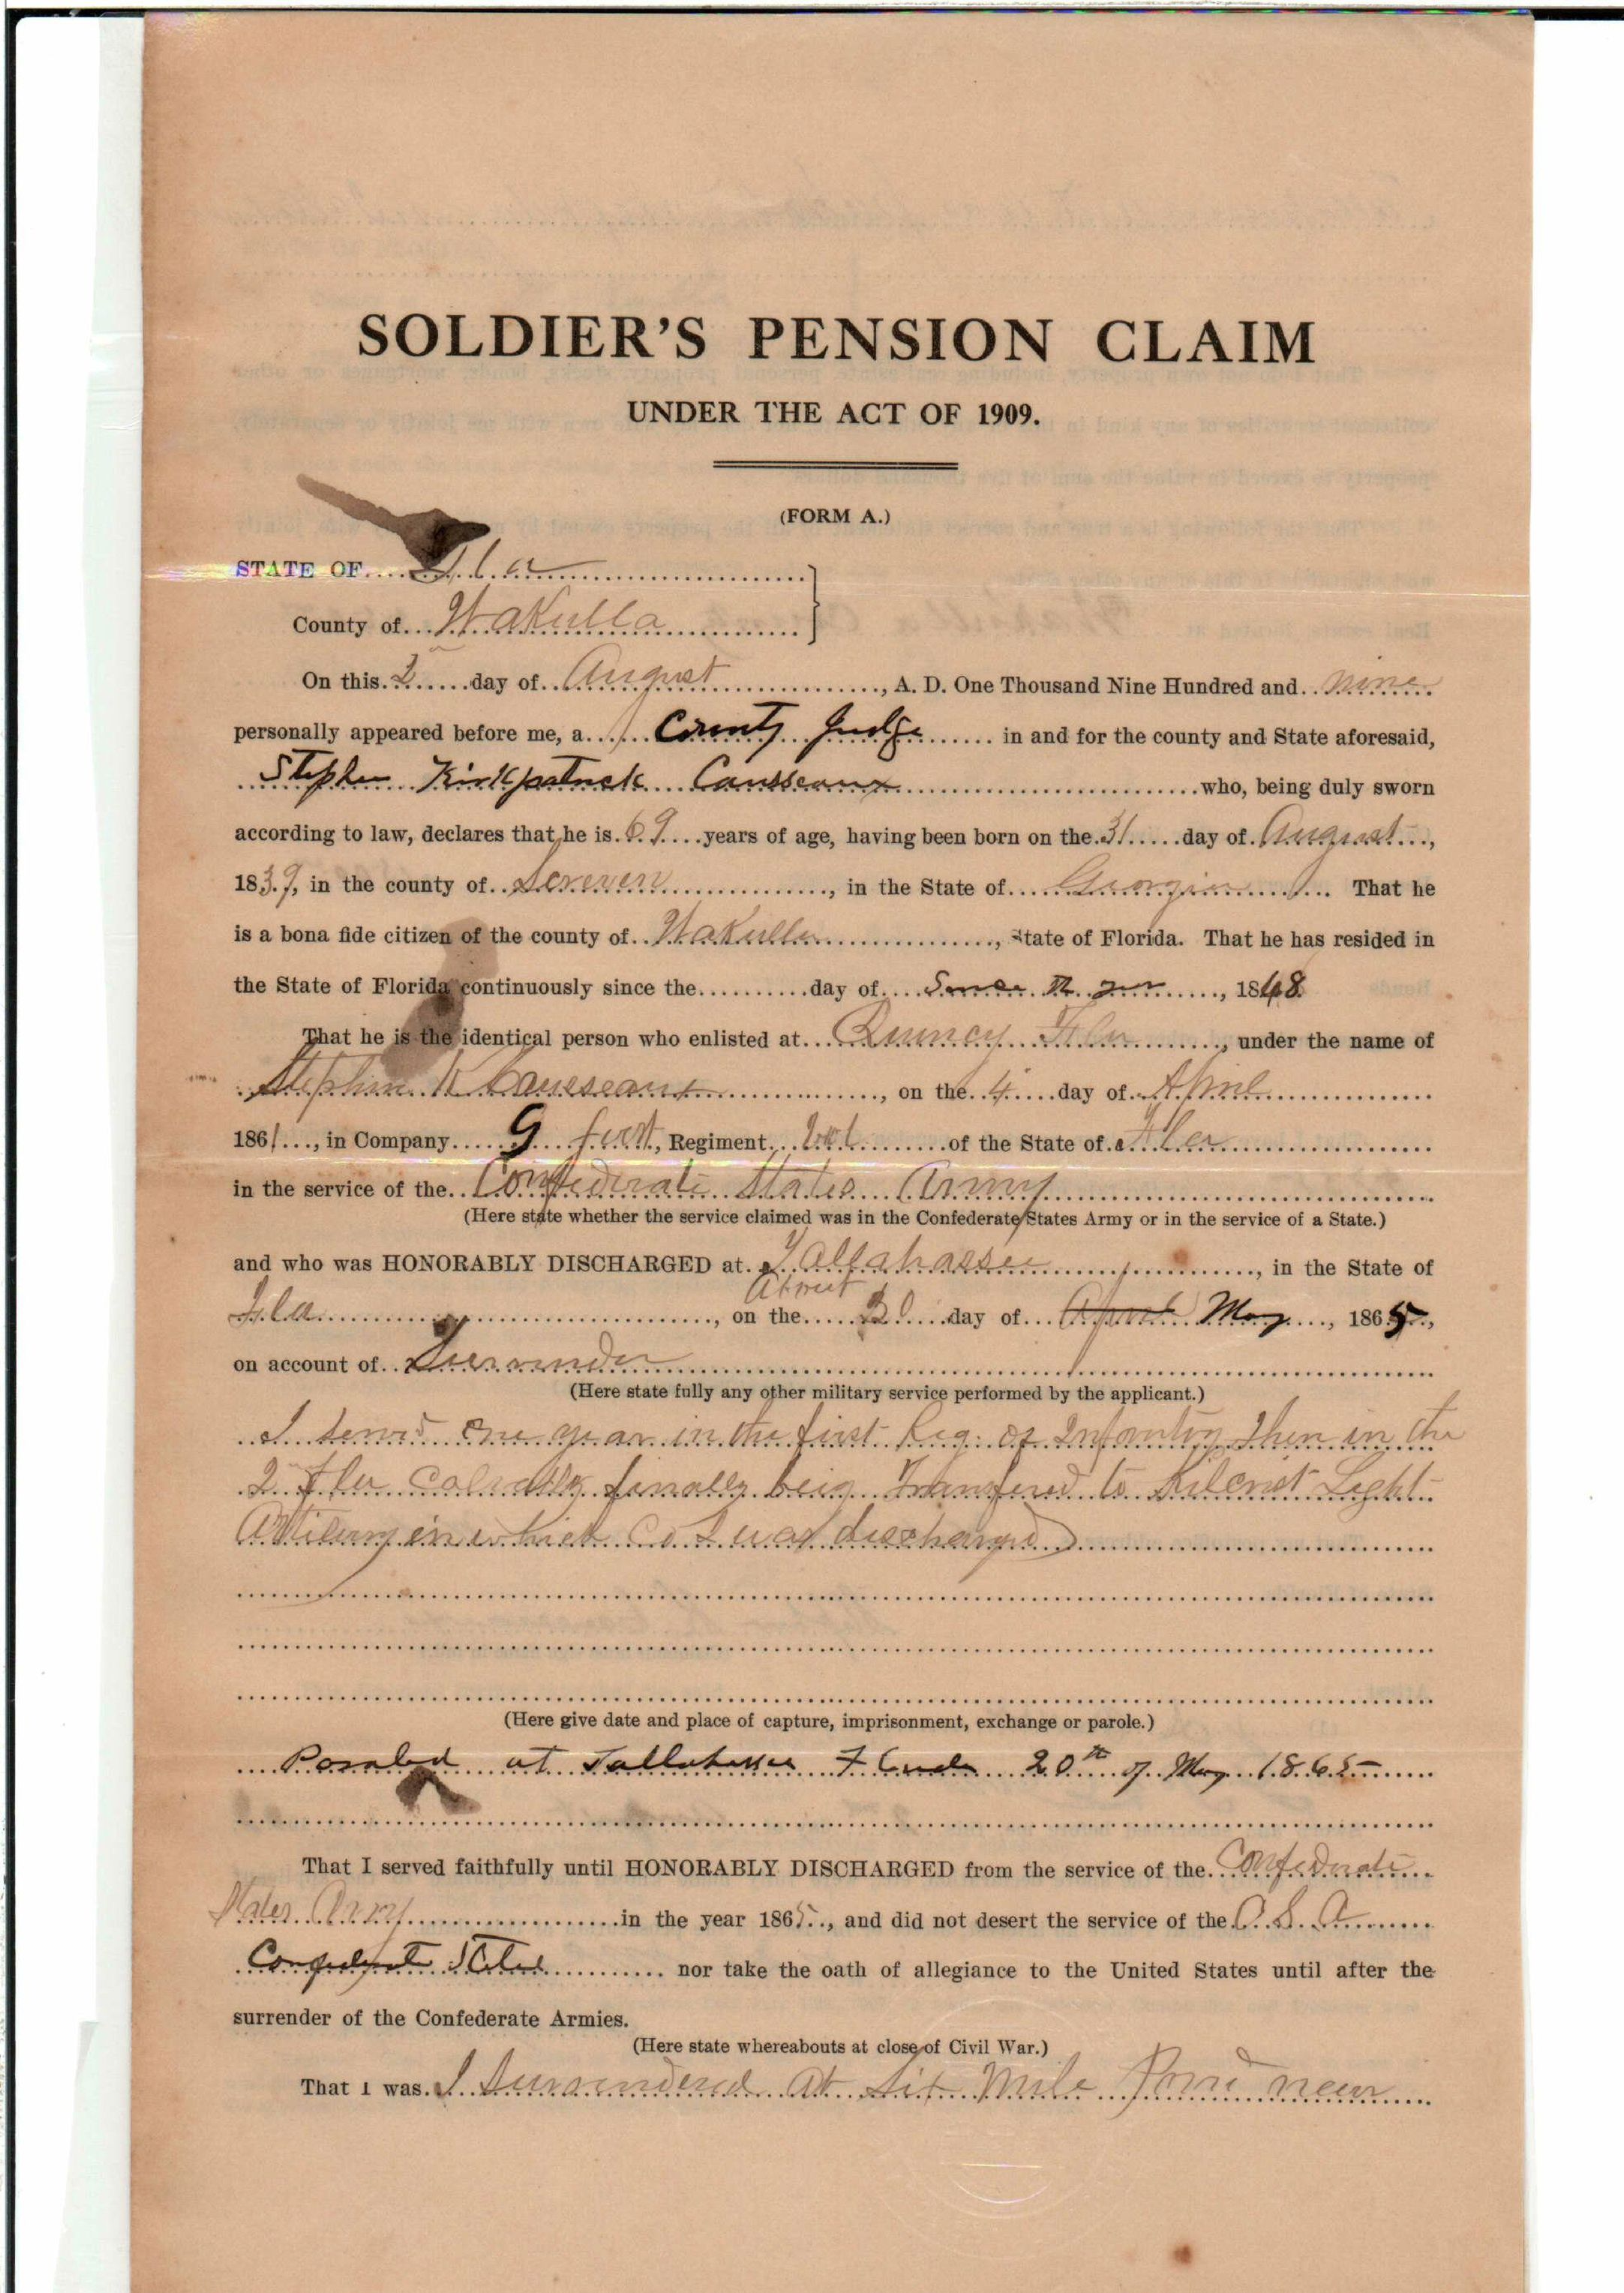 SOLDIER'S PENSION CLAIM
UNDER THE ACT OF 1909.
(FORM A.)
STATE OF Fla
County of Wakulla
On this 2 day of August, A. D. One Thousand Nine Hundred and nine
personally appeared before me, a County Judge in and for the county and State aforesaid,
Stephen Kirkpatrick Causseaux who, being duly sworn
according to law, declares that he is 69 years of age, having been born on the 31 day of August,
1839, in the county of Screven, in the State of Georgia. That he
is a bona fide citizen of the county of Wakulla, State of Florida. That he has resided in
the State of Florida continuously since the day of Since the year, 1848
That he is the identical person who enlisted at Quincy Fla, under the name of
Stephen K Causseaux, on the 4 day of April
1861, in Company G first, Regiment of the State of Fla
in the service of the Confederate States Army
(Here state whether the service claimed was in the Confederate States Army or in the service of a State.)
and who was HONORABLY DISCHARGED at Tallahassee, in the State of
About
Fla, on the 20 day of April May, 1865,
on account of Surrender
(Here state fully any other military service performed by the applicant.)
I served one year in the first Reg. of Infantry then in the
2 Fla finally being Transfered to Kilcrist Light
Artillery in which Co I was discharged
(Here give date and place of capture, imprisonment, exchange or parole.)
Paroled at Tallahassee Florida 20th of May 1865
That I served faithfully until HONORABLY DISCHARGED from the service of the Confederate
States Army in the year 1865, and did not desert the service of the C. S. A
Confederate States nor take the oath of allegiance to the United States until after the
surrender of the Confederate Armies.
(Here state whereabouts at close of Civil War.)
That I was I Surrendered at Six Mile Pond near